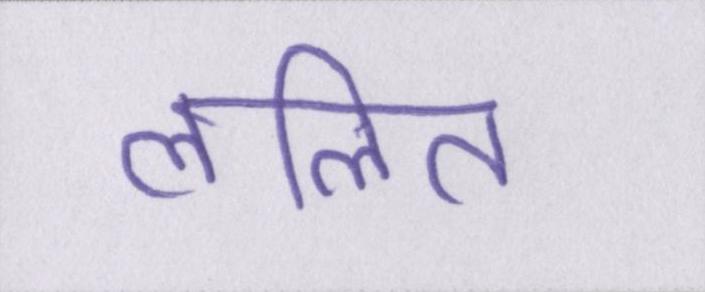 ललित